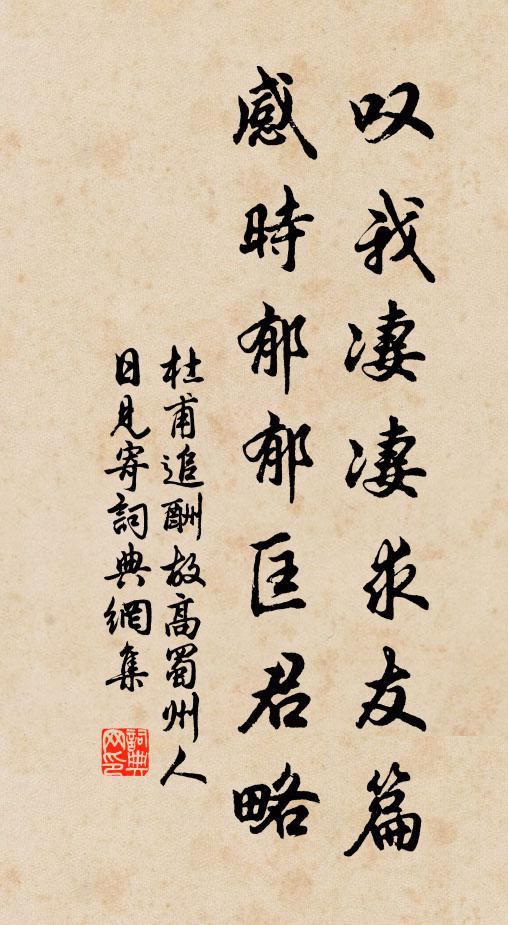 叹我凄凄求友篇
感時郁郁匡君略
杜甫追酬故高蜀州人
日見寄詞典網集
詞典
网印